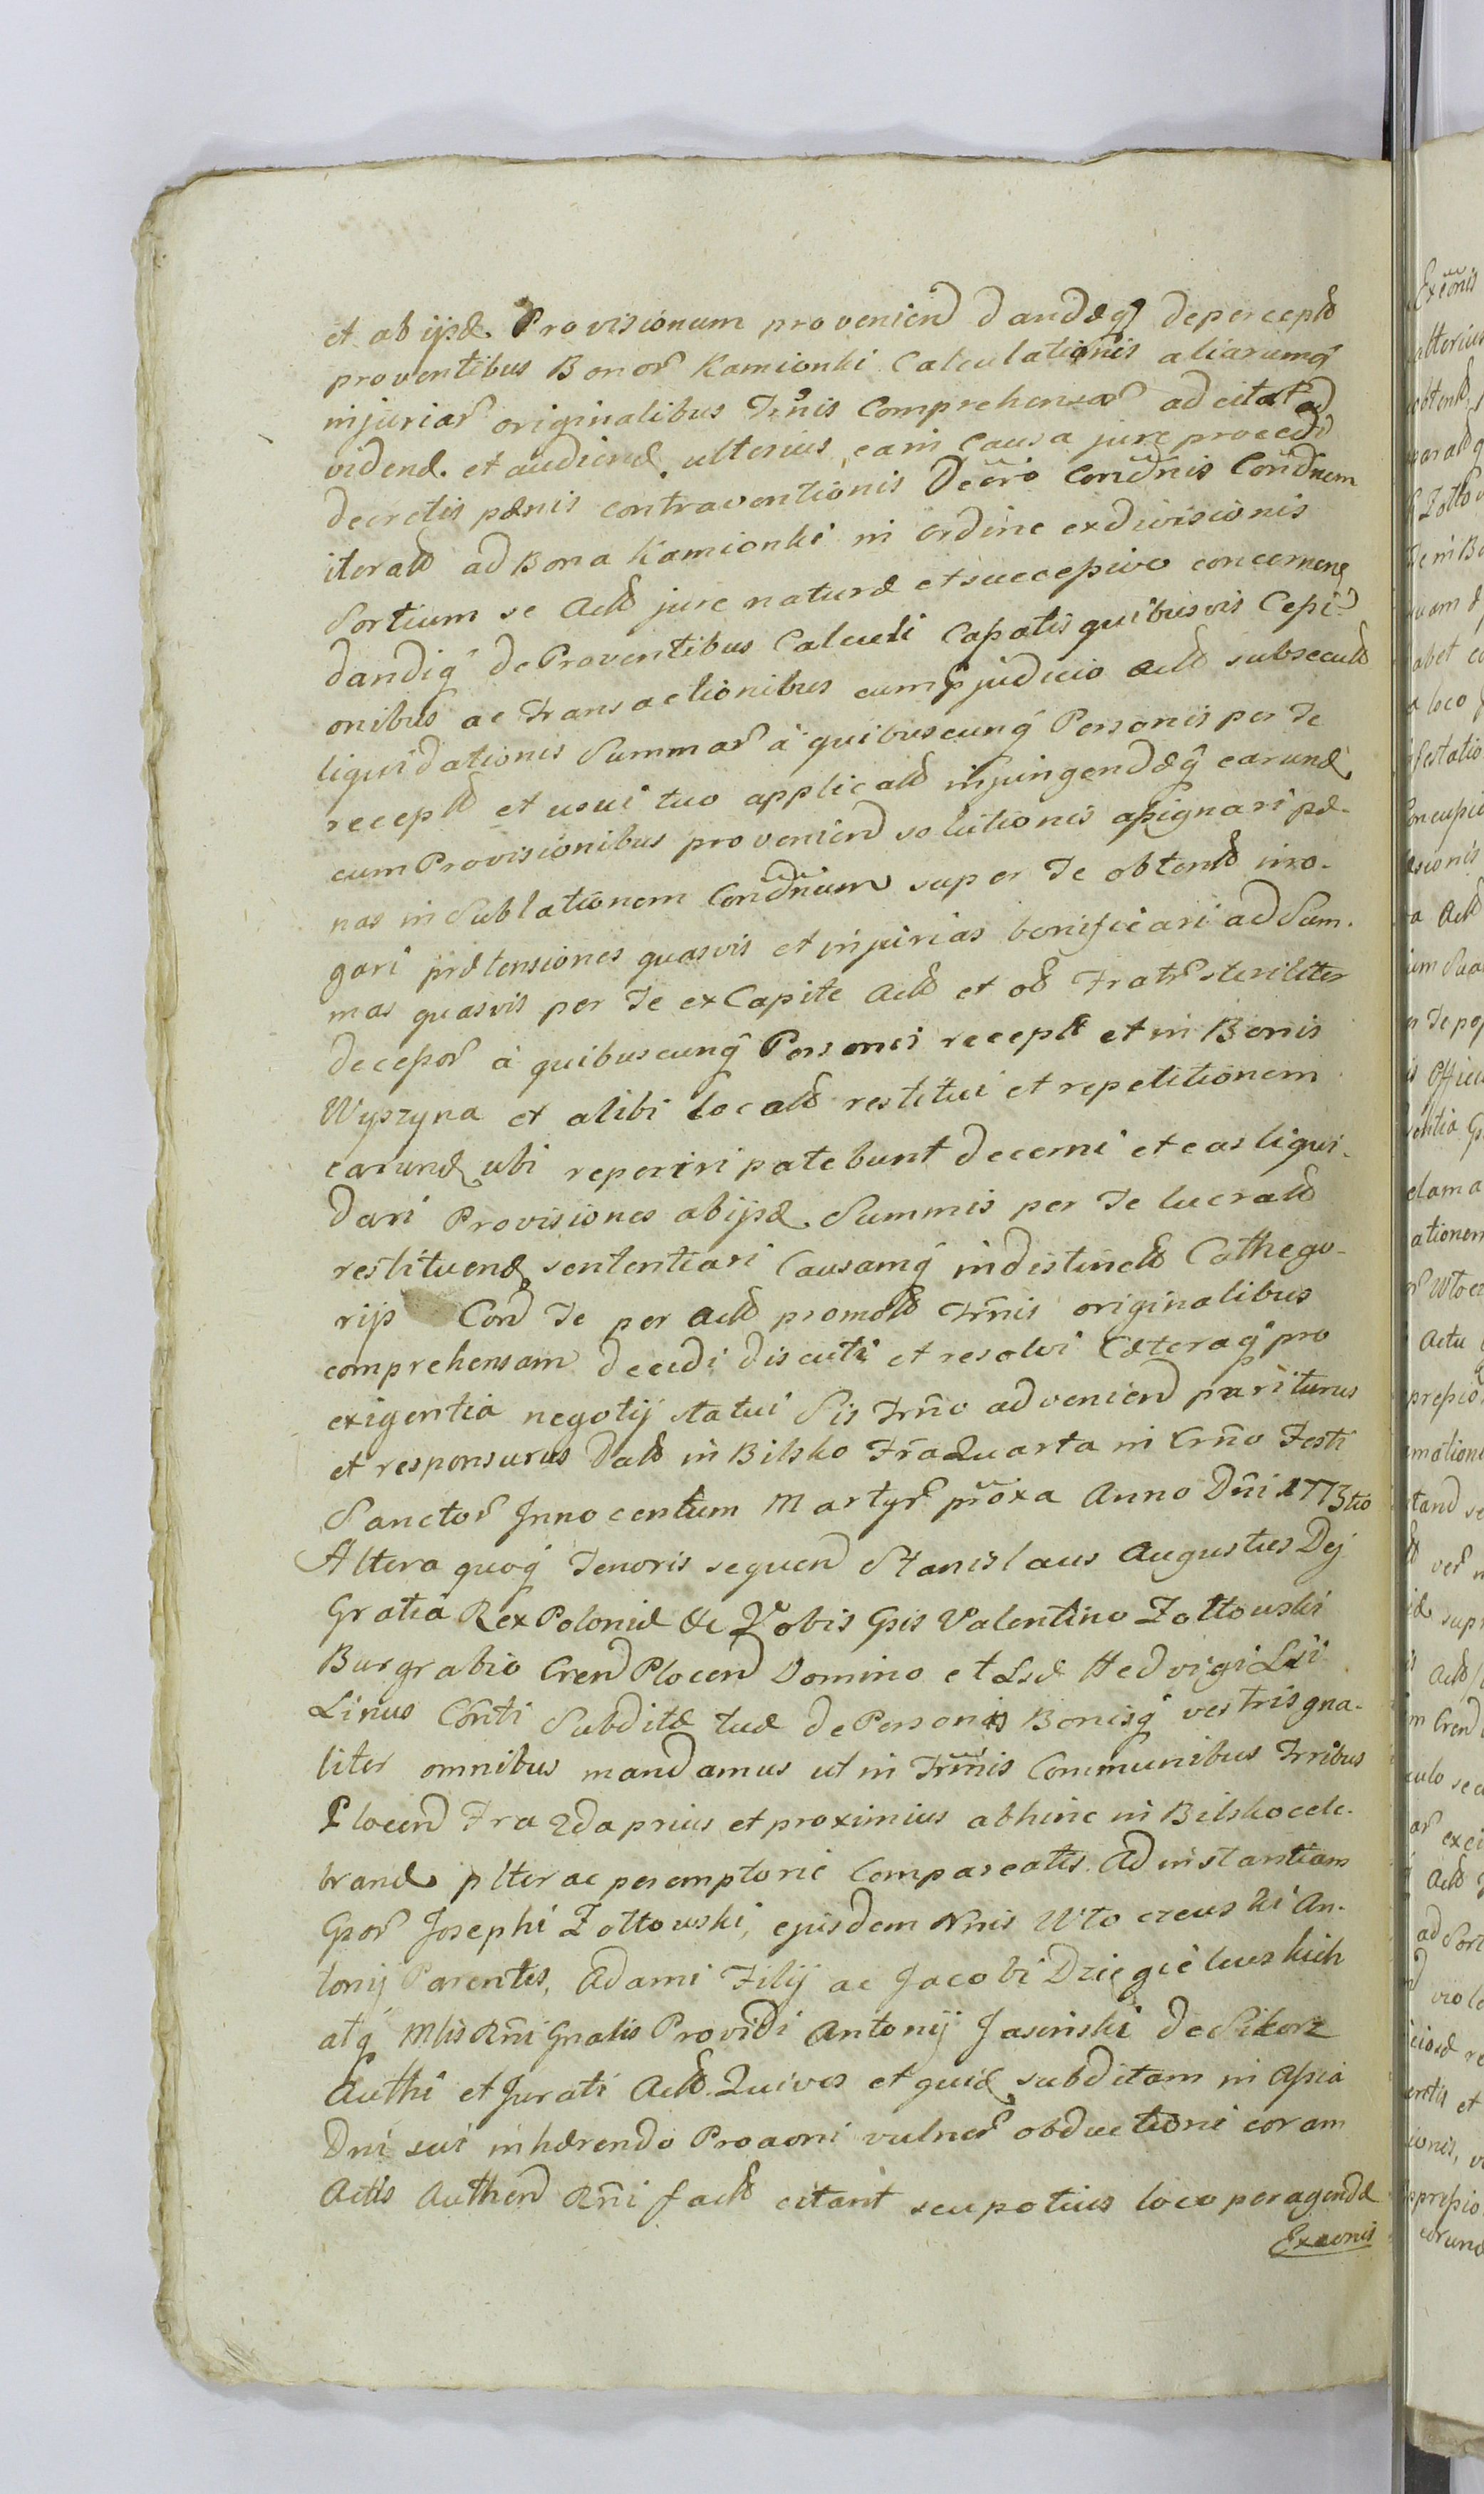 et ab ijsd. Provisionum provenien dandæq depercept
proventibus Bonor Kamionki Calculationis aliarumq
injuriar originalibus Trnis Comprehensar ad citat ad
vidend. et audiend. ulterius eam Causa jure procedi
decretis pænis contraventionis Decro Condnis Condnem
iterat ad Bona Kamionki in ordine exdivisionis
Sortium se Act jure naturæ et successivo concernen
dandiq de Proventibus Calculi Cassatis quibusvis Cessi
onibus ac Transactionibus cum pjudicio Act subsecut
liquidationis Summar à quibuscunq Personis per Te
recept et usui tuo applicat injungendæq earund
cum Provisionibus provenien solutionis assignari pæ-
nas in Sublationem Condnum super Te obtent irro-
gari prætensiones quasvis et injurias bonificari ad Sum-
mas quasvis per Te ex Capite Act et ob Fratr steriliter
decessor à quibuscunq Personis recept et in Bonis
Wyszyna et alibi locat restitui et repetitionem
earund ubi reperiri patebunt decerni et eas liqui-
dari Provisiones ab ijsd. Summis per Te lucrat
restituend sententiari Causamq indistinct Cathego-
rijs Con Te per Act promot Trnis originalibus
comprehensam decidi discuti et resolvi Cæteraq pro
exigentia negotij statui Sis Trno advenien pariturus
et responsurus Dat in Bilsko Fra Quarta in Crno Festi
Sanctor Innocentum Martyr proxa Anno Dni 1773tio
Altera quoq Tenoris sequen Stanislaus Augustus Dej
Gratia Rex Poloniæ &c Vobis Gsis Valentino Zołtowski
Burgrabio Cren Plocen Domino et Lsæ Hedvigi Lii
Linus Conti Subditæ tuæ de Personis Bonisq vestris gna-
liter omnibus mandamus ut in Trnis Communibus Trribus
Plocen Fra 2da prius et proximius abhinc in Bilsko cele-
brand plter ac peremptorie Compareatis Ad instantiam
Gsor Josephi Zołtowski, ejusdem Nnis Włoczewski An-
tonij Parentis, Adami Filij ac Jacobi Dziegielewskich
atq Mlis Rni Gnalis Providi Antonij Jasinski de Sikorz
Authi et Jurati Act Quivos et quid subditam in Assia
Dni sui inhærendo Proaoni vulner obductioni coram
Actis Authen Rni fact citant seu potius loco peragendæ
Exaonis